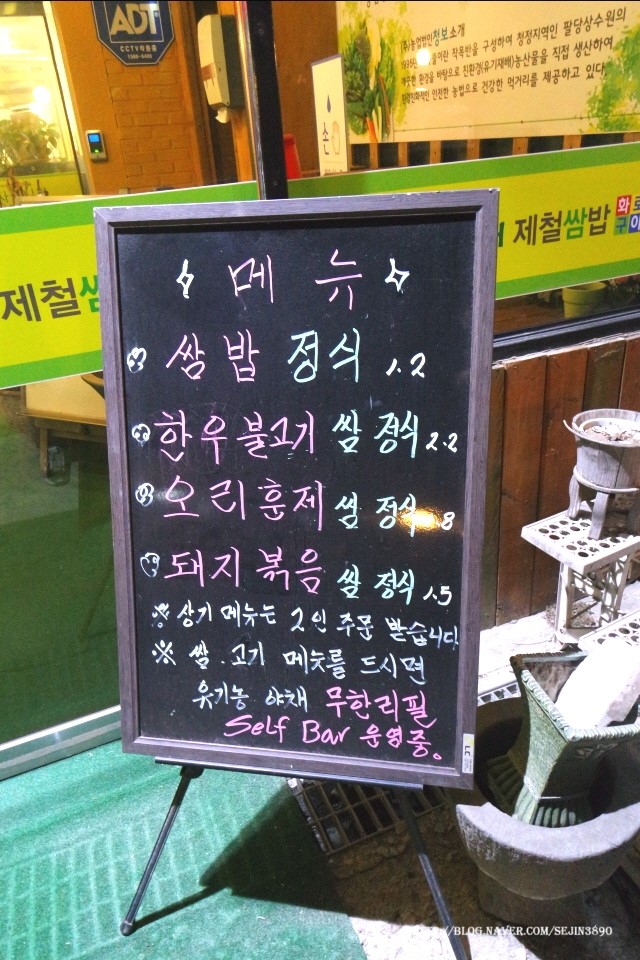 ADT
CCTV작동중
1588-6400
(주)농업법인청보소개
청정지역인 팔당상수원의
작목반을 구성하여
친환경(유기재배)농산물을 직접 생산하여
안전한 농법으로 건강한 먹거리를 제공하고 있다
손
제철쌈
제철쌈밥 화로구이
메뉴
쌈밥 정식 1.2
한우불고기 쌈 정식 2.2
오리훈제 쌈 정식 8
돼지볶음 쌈 정식 1.5
※ 상기 메뉴는 2인 주문 받습니다
※ 쌈.고기 메뉴를 드시면
유기농 야채 무한리필
Self Bar 운영중。
BLOG.NAVER.COM/SEJIN3890